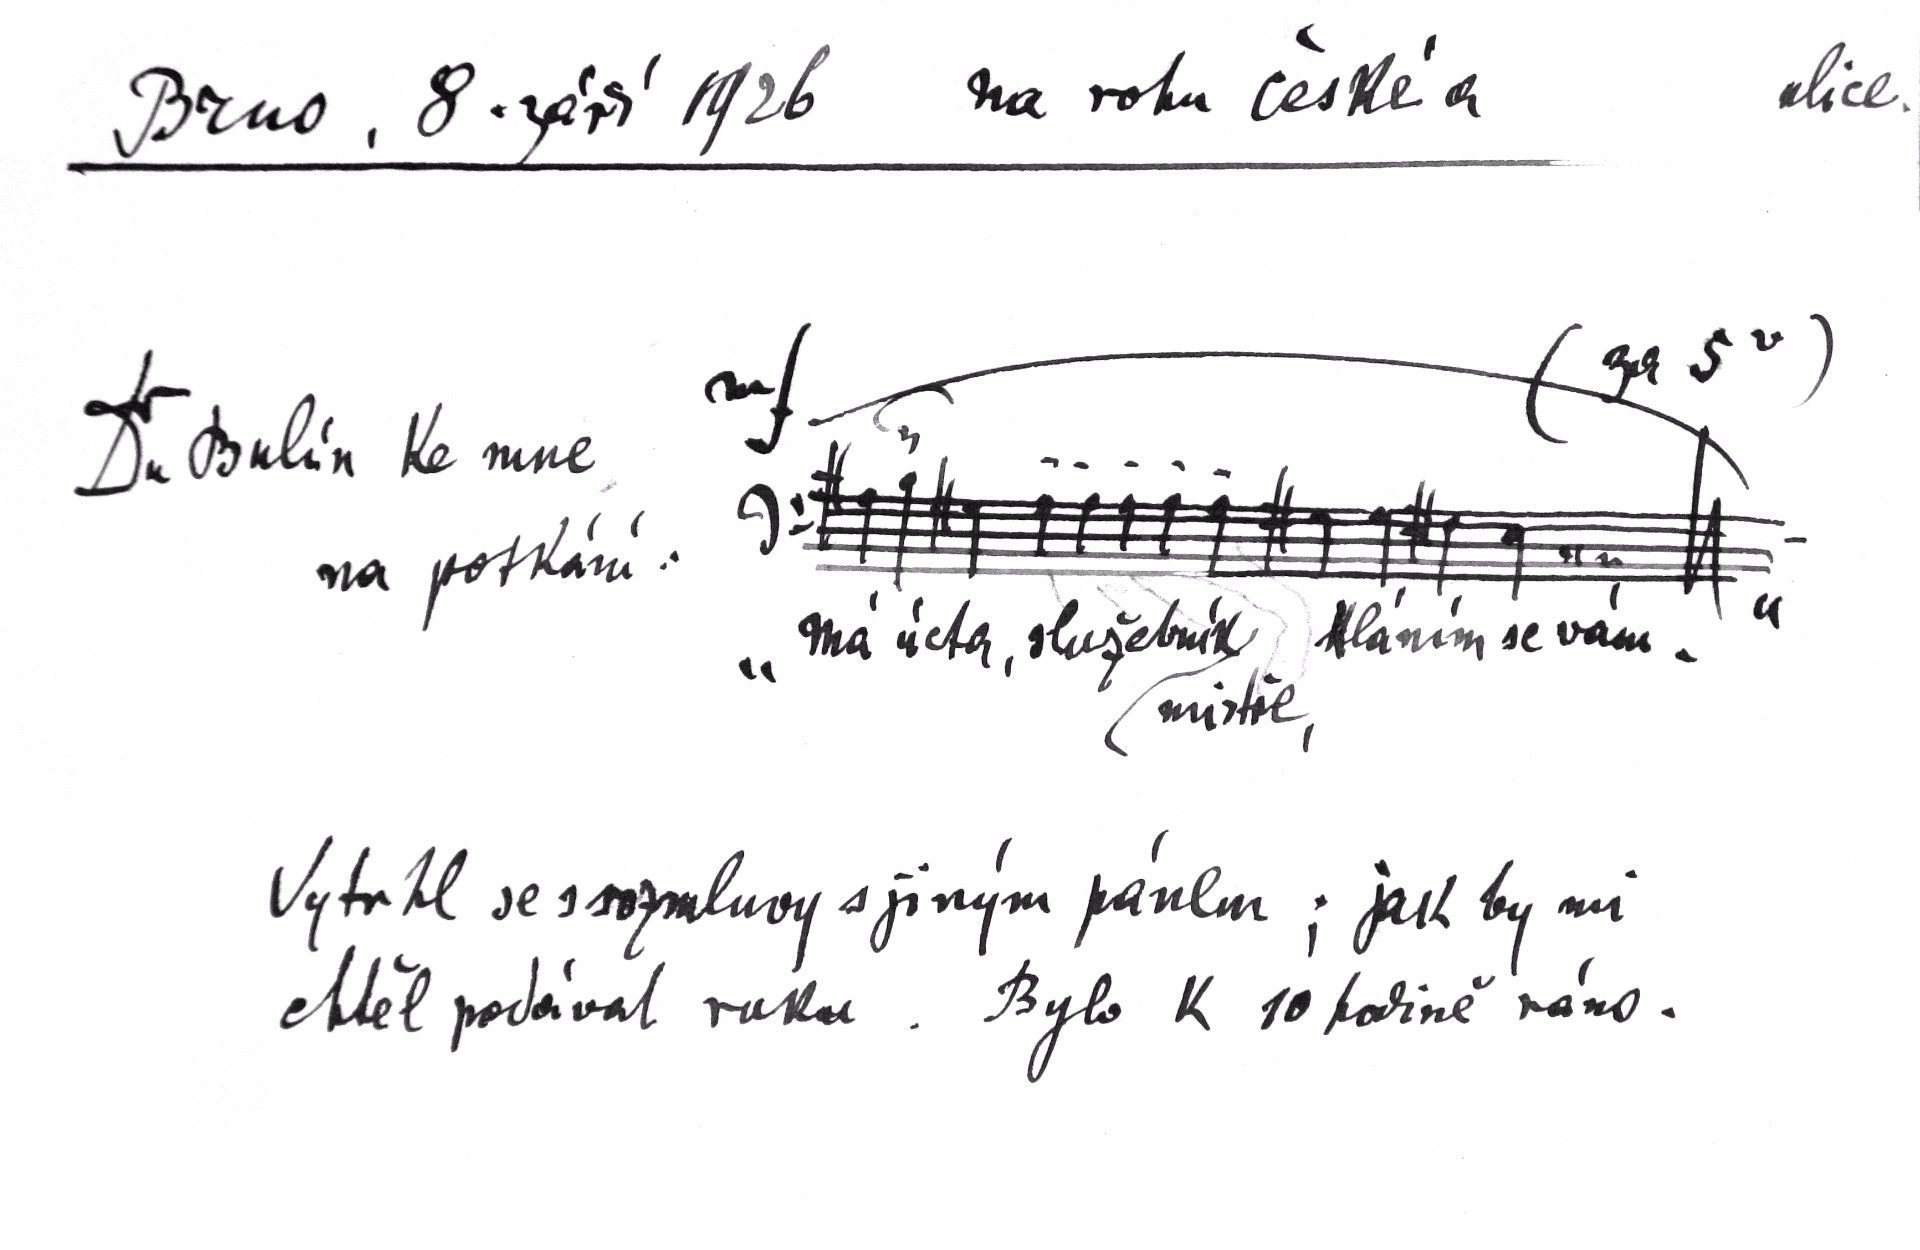 Brno, 8. září 1926 na rohu České a ulice.
mf (za 5 v)
Dr Bulín ke mne
na potkání.
3
„Má úcta, služebník kláním se vám."
mistře,
Vytrhl se s rozmluvy s jiným pánem; jak by mi
chtěl podával ruku. Bylo k 10 hodině ráno.